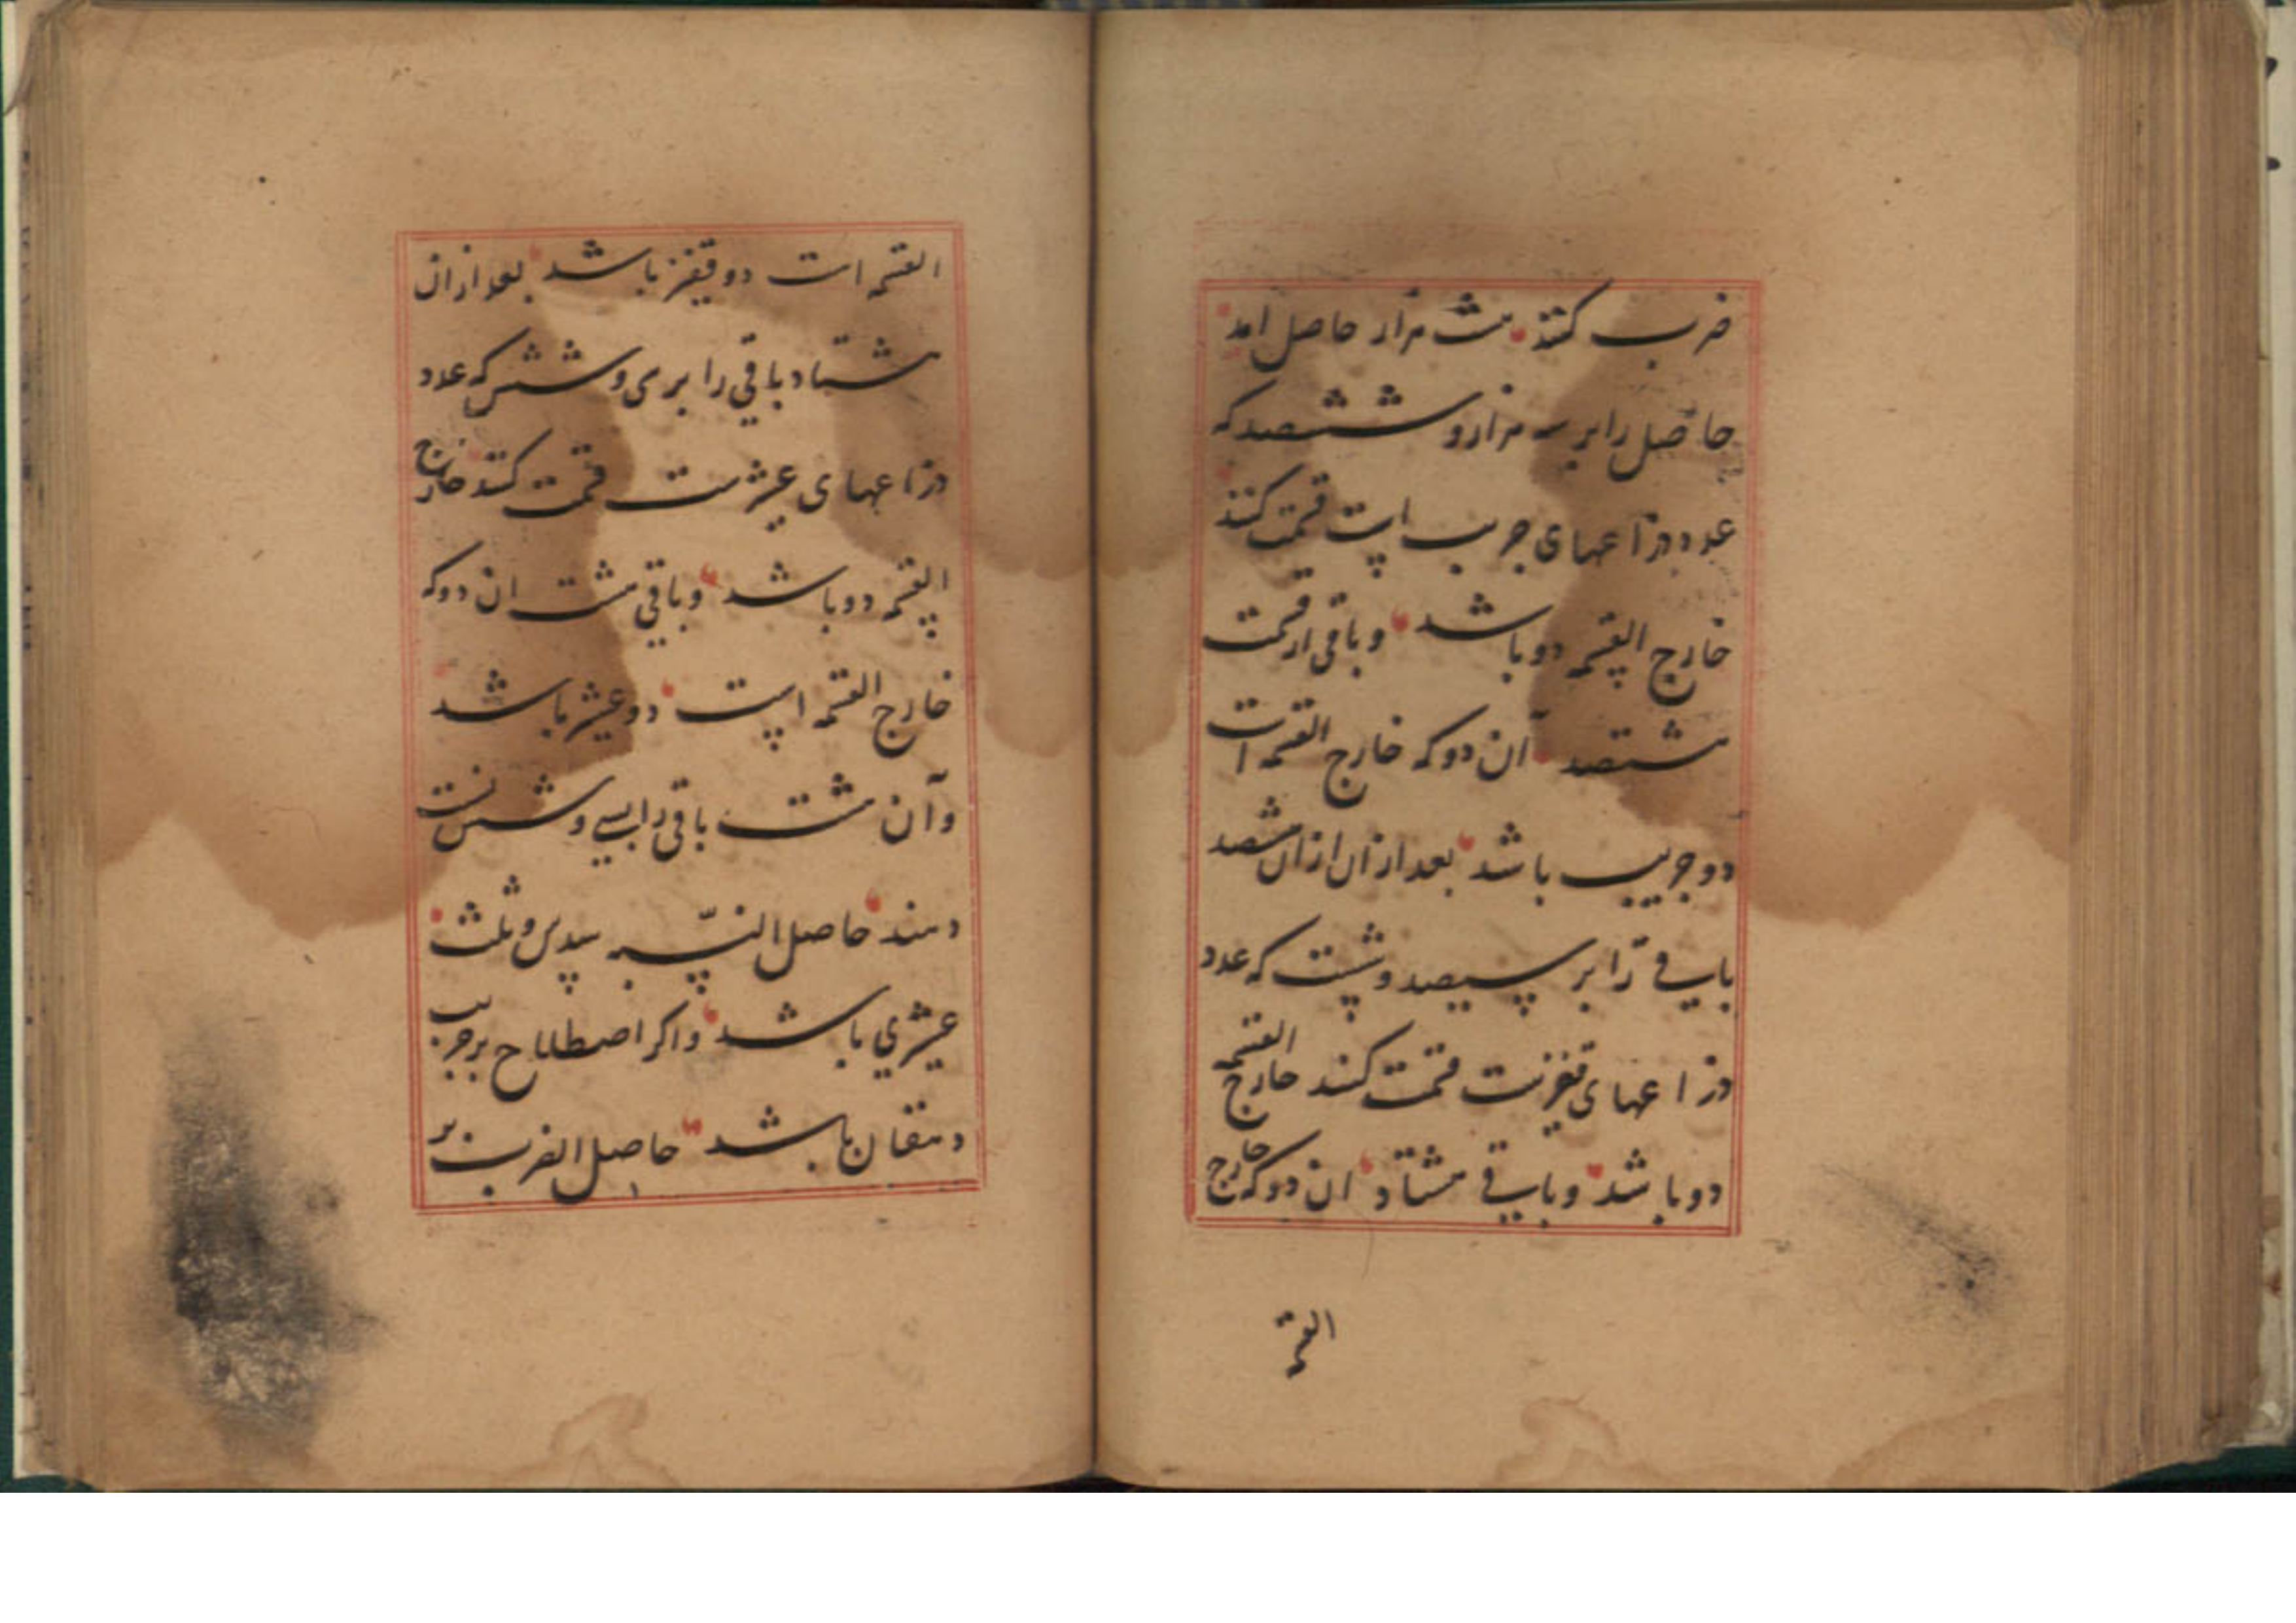 ضرب کنند هشت هزار حاصل امد
حاصل را بر سه هزار و ششصد که
عدد ذراعهای جریب است قسمت کنند
خارج القسمه دو باشد و باقی از قسمت
هشتصد آن دو که خارج القسمه است
دو جریب باشد بعد از ان از ان هشصد
باقی را بر سیصد و شست که عدد
ذراعهای قفیزست قسمت کنند خارج القسمه
دو باشد و باقی هشتاد ان دو که خارج
القسمه
القسمه است دو قفیز باشد بعد از ان
هشتاد باقی را بر سی و شش که عدد
ذراعهای عشرست قسمت کنند خارج
القسمه دو باشد و باقی هشت ان دو که
خارج القسمه است دو عشر باشد
وآن هشت باقی را بسی و شش نسبت
دهند حاصل النسبه سدس و ثلث
عشری باشد واکر اصطلاح بر جریب
دهقان باشد حاصل الضرب بر